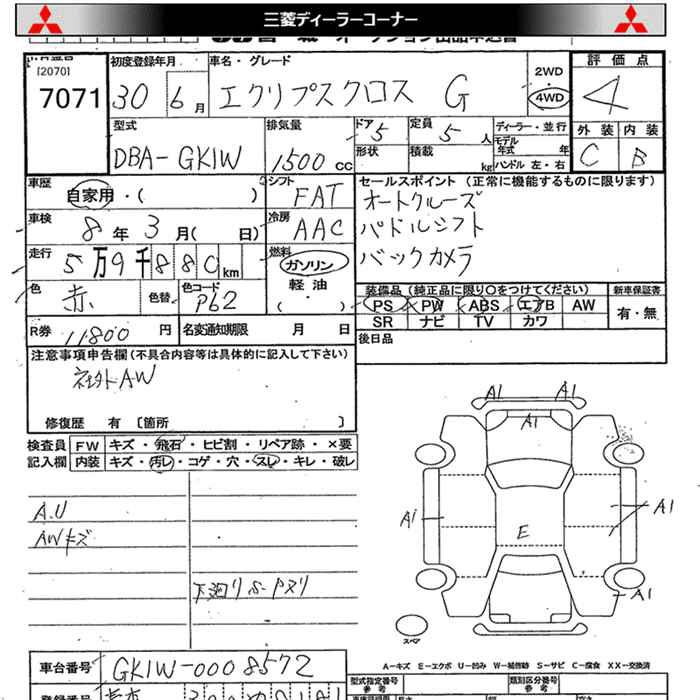 三菱ディーラーコーナー
[2070]
7071
初度登録年月
30 6月
車名・グレード
エクリプスクロス G
2WD
・
4WD
評価点
4
外装 内装
C B
型式
DBA-GK1W
排気量
1500 CC
ドア 5
定員 5人
ディーラー・並行
モデル年式 年
形状
積載 kg
ハンドル 左・右
車歴
自家用・( )
シフト
FAT
セールスポイント (正常に機能するものに限ります)
オートクルーズ
パドルシフト
バックカメラ
車検
8年3月( 日)
冷房
AAC
走行
5万9千880km
燃料
ガソリン
軽油
( )
色
赤
色替
色コード
P62
装備品(純正品に限り○をつけてください)
新車保証書
PS PW ABS エアB AW
有・無
SR ナビ TV カワ
R券 11800円
名変通知期限 月 日
後日品
注意事項申告欄(不具合内容等は具体的に記入して下さい)
社外AW
修復歴 有 [箇所 ]
検査員
記入欄
FW キズ・飛石・ヒビ割・リペア跡・×要
内装 キズ・汚レ・コゲ・穴・スレ・キレ・破レ
A.U
AWキズ
下廻りS・Pヌリ
A1 A1
A1
E
A1
A1
スペア
A-キズ E-エクボ U-凹み W-補修跡 S-サビ C-腐食 XX-交換済
車台番号
GK1W-0008572
型式指定番号
参考
類別区分番号
参考